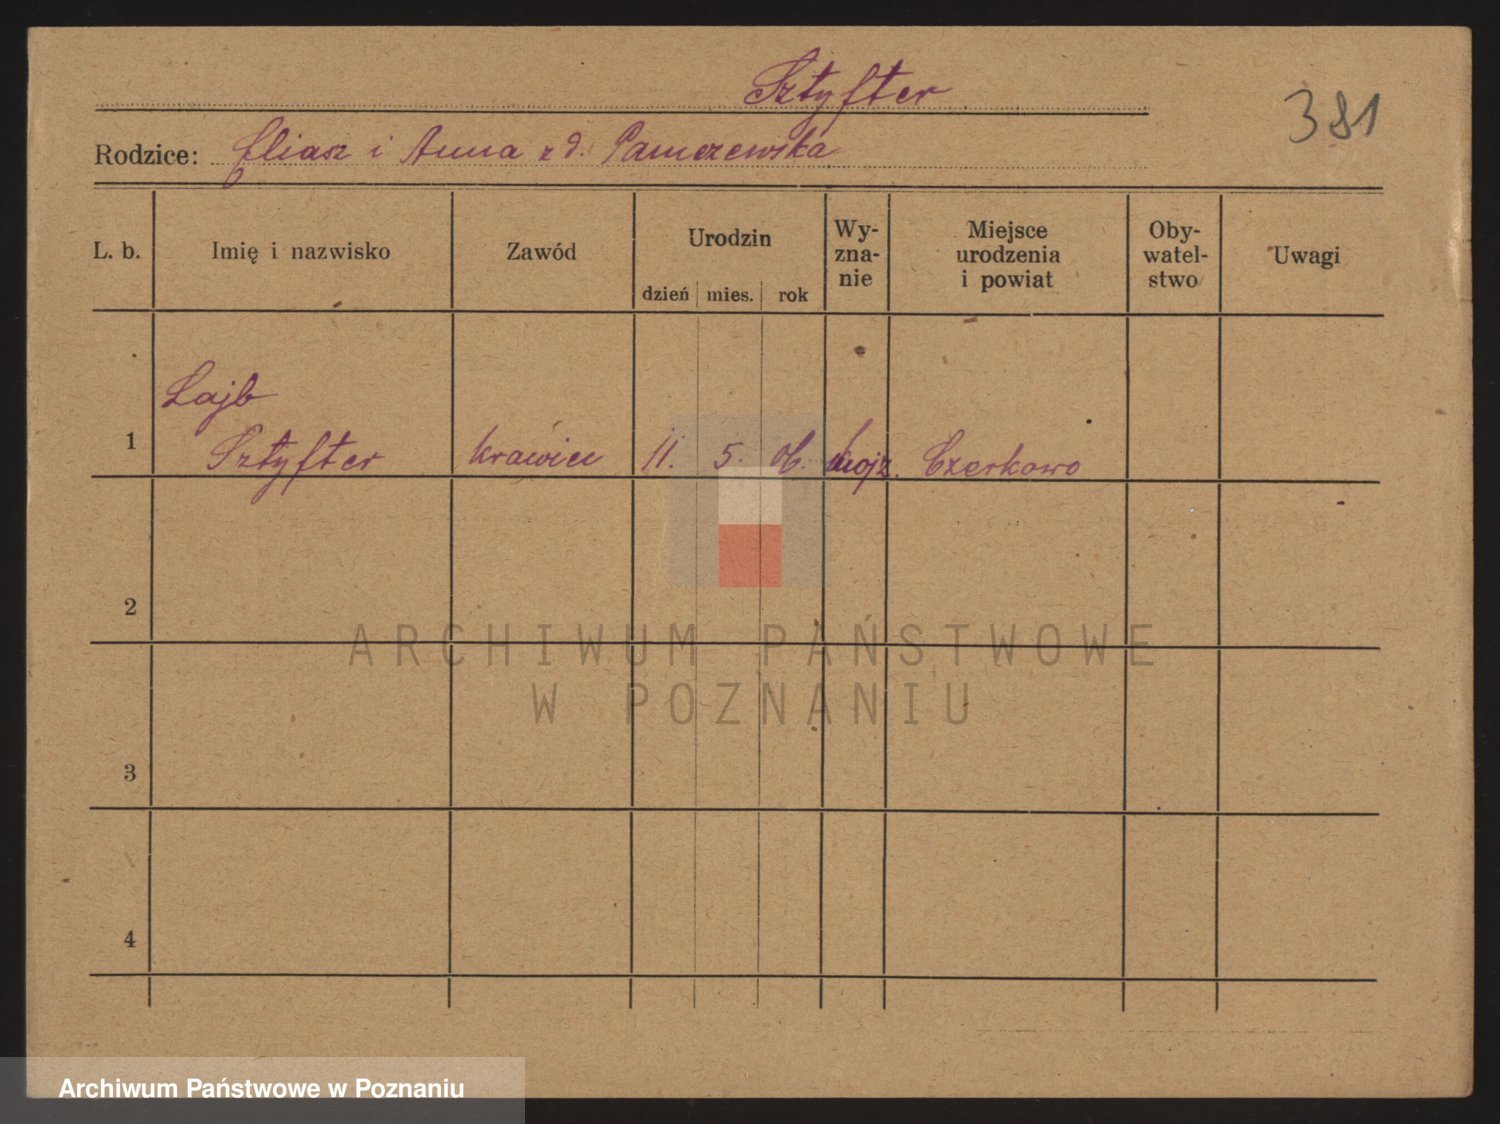 Sztyfter
381
Rodzice: Eliasz i Anna z d. Pamczewska
L. b. Imię i nazwisko Zawód Urodzin dzień mies. rok Wy-zna-nie Miejsce urodzenia i powiat Oby-watel-stwo Uwagi
Lajb
1 Sztyfter krawiec 11. 5. 06. mojż. Czerkowo
2
3
4
ARCHIWUM PAŃSTWOWE
W POZNANIU
Archiwum Państwowe w Poznaniu